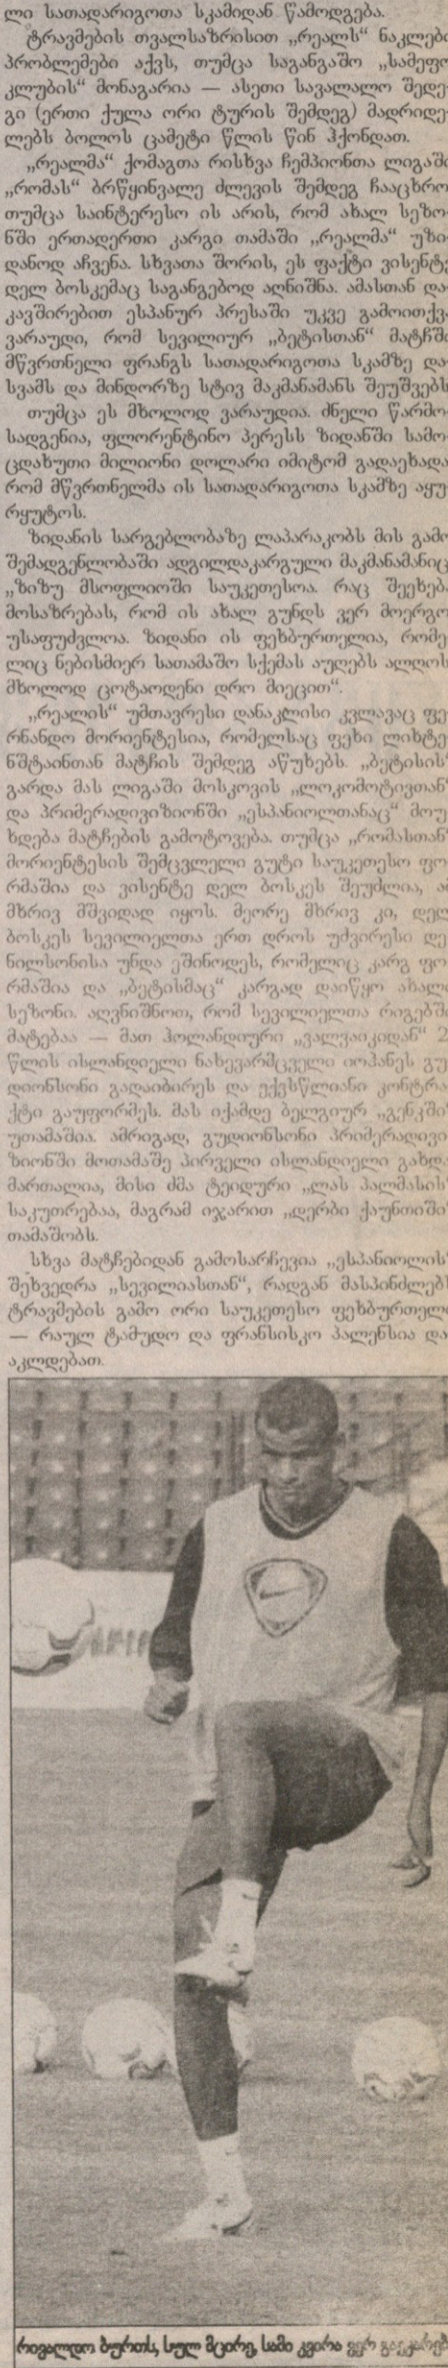 ლი სათადარიგოთა სკამიდან წამოდგება.
ტრავმების თვალსაზრისით „რეალს“ ნაკლები
პრობლემები აქვს, თუმცა საგანგაშო „სამეფო
კლუბის“ მონაგარია — ასეთი სავალალო შედე-
გი (ერთი ქულა ორი ტურის შემდეგ) მადრიდე-
ლებს ბოლოს ცამეტი წლის წინ ჰქონდათ.
„რეალმა“ ქომაგთა რისხვა ჩემპიონთა ლიგაში
„რომას“ ბრწყინვალე ძლევის შემდეგ ჩააცხრო,
თუმცა საინტერესო ის არის, რომ ახალ სეზო-
ნში ერთადერთი კარგი თამაში „რეალმა“ უზი-
დანოდ აჩვენა. სხვათა შორის, ეს ფაქტი ვისენტე
დელ ბოსკემაც საგანგებოდ აღნიშნა. ამასთან და-
კავშირებით ესპანურ პრესაში უკვე გამოითქვა
ვარაუდი, რომ სევილიურ „ბეტისთან“ მატჩში
მწვრთნელი ფრანგს სათადარიგოთა სკამზე და-
სვამს და მინდორზე სტივ მაკმანამანს შეუშვებს.
თუმცა ეს მხოლოდ ვარაუდია. ძნელი წარმო-
სადგენია, ფლორენტინო პერესს ზიდანში სამო-
ცდახუთი მილიონი დოლარი იმიტომ გადაეხადა,
რომ მწვრთნელმა ის სათადარიგოთა სკამზე აყუ-
რყუტოს.
ზიდანის სარგებლობაზე ლაპარაკობს მის გამო
შემადგენლობაში ადგილდაკარგული მაკმანამანიც:
„ზიზუ მსოფლიოში საუკეთესოა. რაც შეეხება
მოსაზრებას, რომ ის ახალ გუნდს ვერ მოერგო,
უსაფუძვლოა. ზიდანი ის ფეხბურთელია, რომე-
ლიც ნებისმიერ სათამაშო სქემას აუღებს ალღოს,
მხოლოდ ცოტაოდენი დრო მიეცით“.
„რეალის“ უმთავრესი დანაკლისი კვლავაც ფე-
რნანდო მორიენტესია, რომელსაც ფეხი ლიხტე-
ნშტაინთან მატჩის შემდეგ აწუხებს. „ბეტისის“
გარდა მას ლიგაში მოსკოვის „ლოკომოტივთან“
და პრიმერადივიზიონში „ესპანიოლთანაც“ მოუ-
ხდება მატჩების გამოტოვება. თუმცა „რომასთან“
მორიენტესის შემცვლელი გუტი საუკეთესო ფო-
რმაშია და ვისენტე დელ ბოსკეს შეუძლია, ამ
მხრივ მშვიდად იყოს. მეორე მხრივ კი, დელ
ბოსკეს სევილიელთა ერთ დროს უძვირესი დე-
ნილსონისა უნდა ეშინოდეს, რომელიც კარგ ფო-
რმაშია და „ბეტისმაც“ კარგად დაიწყო ახალი
სეზონი. აღვნიშნოთ, რომ სევილიელთა რიგებში
მატებაა — მათ ჰოლანდიური „ვალვაიკიდან“ 2
წლის ისლანდიელი ნახევარმცველი იოჰანეს გუ-
დიონსონი გადაიბირეს და ექვსწლიანი კონტრა-
ქტი გაუფორმეს. მას იქამდე ბელგიურ „გენკში“
უთამაშია. ამრიგად, გუდიონსონი პრიმერადივი-
ზიონში მოთამაშე პირველი ისლანდიელი გახდა.
მართალია, მისი ძმა ტეიდური „ლას პალმასის“
საკუთრებაა, მაგრამ იჯარით „დერბი ქაუნთიში“
თამაშობს.
სხვა მატჩებიდან გამოსარჩევია „ესპანიოლის“
შეხვედრა „სევილიასთან“, რადგან მასპინძლებს
ტრავმების გამო ორი საუკეთესო ფეხბურთელი
— რაულ ტამუდო და ფრანსისკო პალენსია და-
აკლდებათ.
რივალდო ბურთს, სულ მცირე, სამი კვირა ვერ გაეკარება